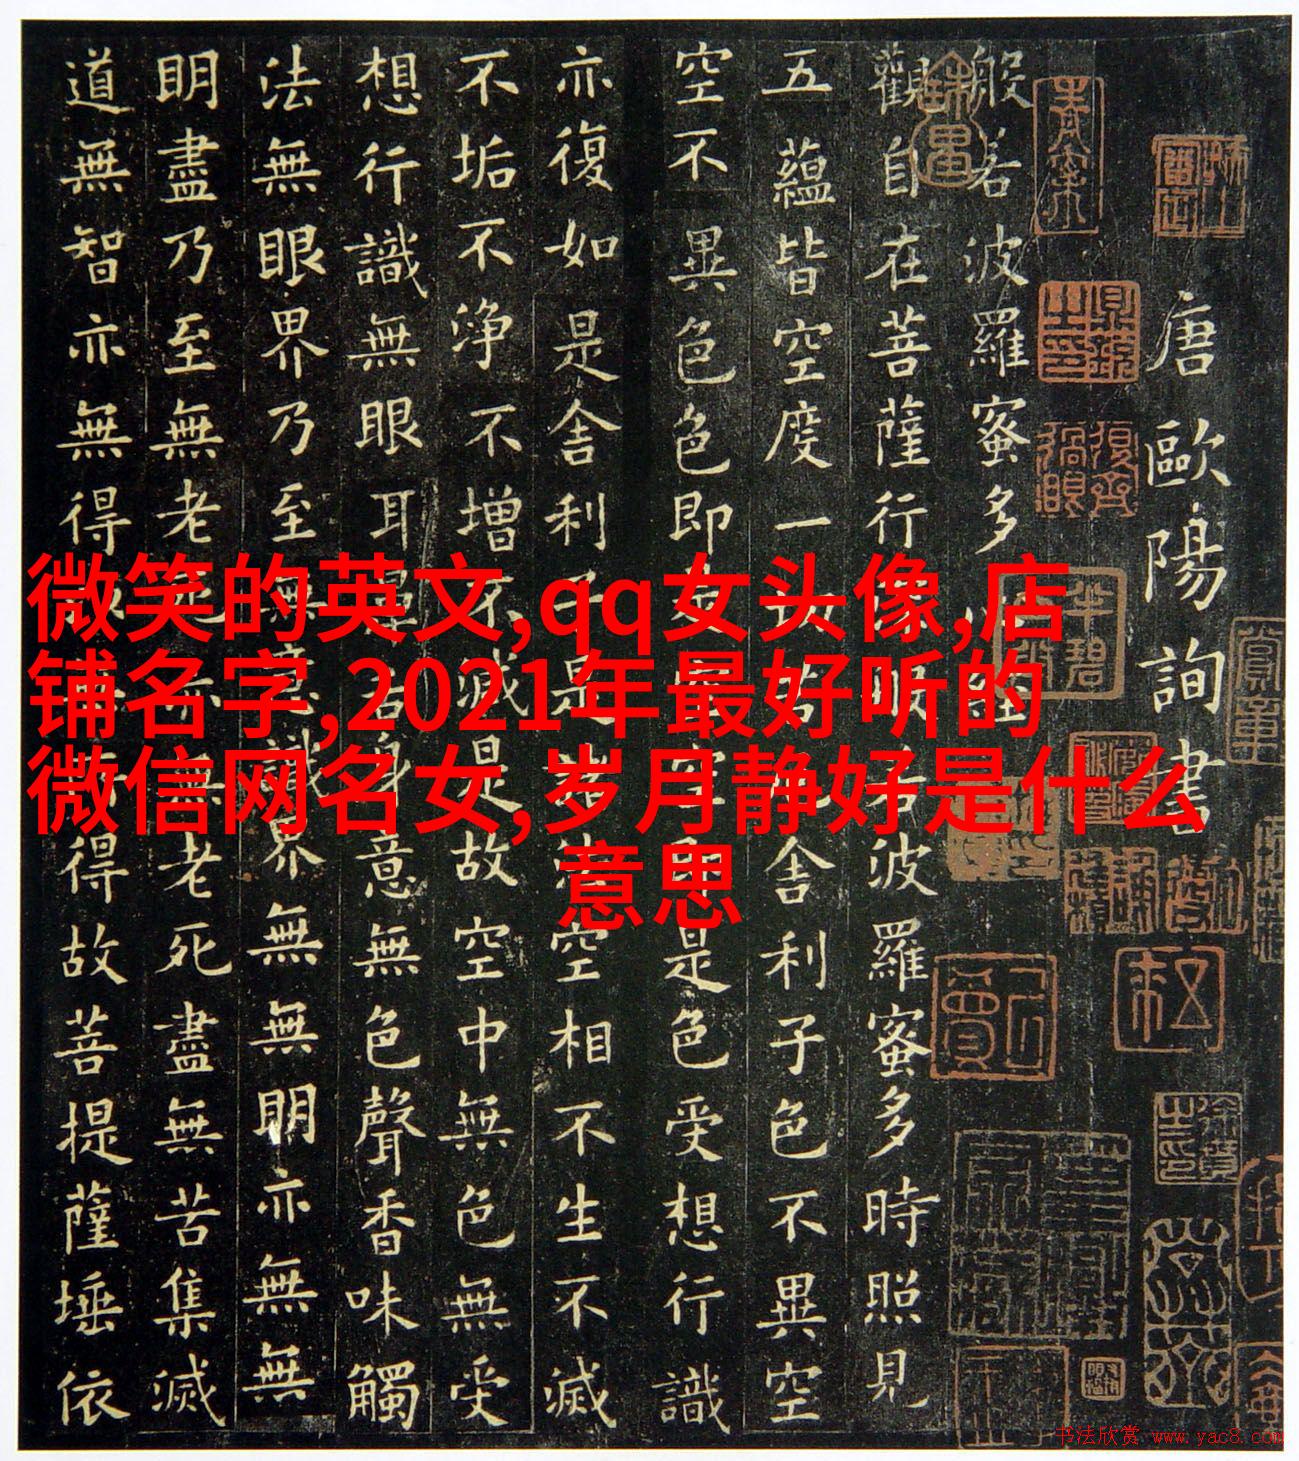 微笑的英文,qq女头像,店
铺名字,2021年最好听的
微信网名女,岁月静好是什么
意思
唐歐陽詢書
般若波羅蜜多心經
觀自在菩薩行深般若波羅蜜多時照見
五蘊皆空度一切苦厄舍利子色不異空
空不異色色即是空空即是色受想行識
亦復如是舍利子是諸法空相不生不滅
不垢不淨不增不減是故空中無色無受
想行識無眼耳鼻舌身意無色聲香味觸
法無眼界乃至無意識界無無明亦無無
明盡乃至無老死亦無老死盡無苦集滅
道無智亦無得以無所得故菩提薩埵依
书法欣赏 www.yac8.com